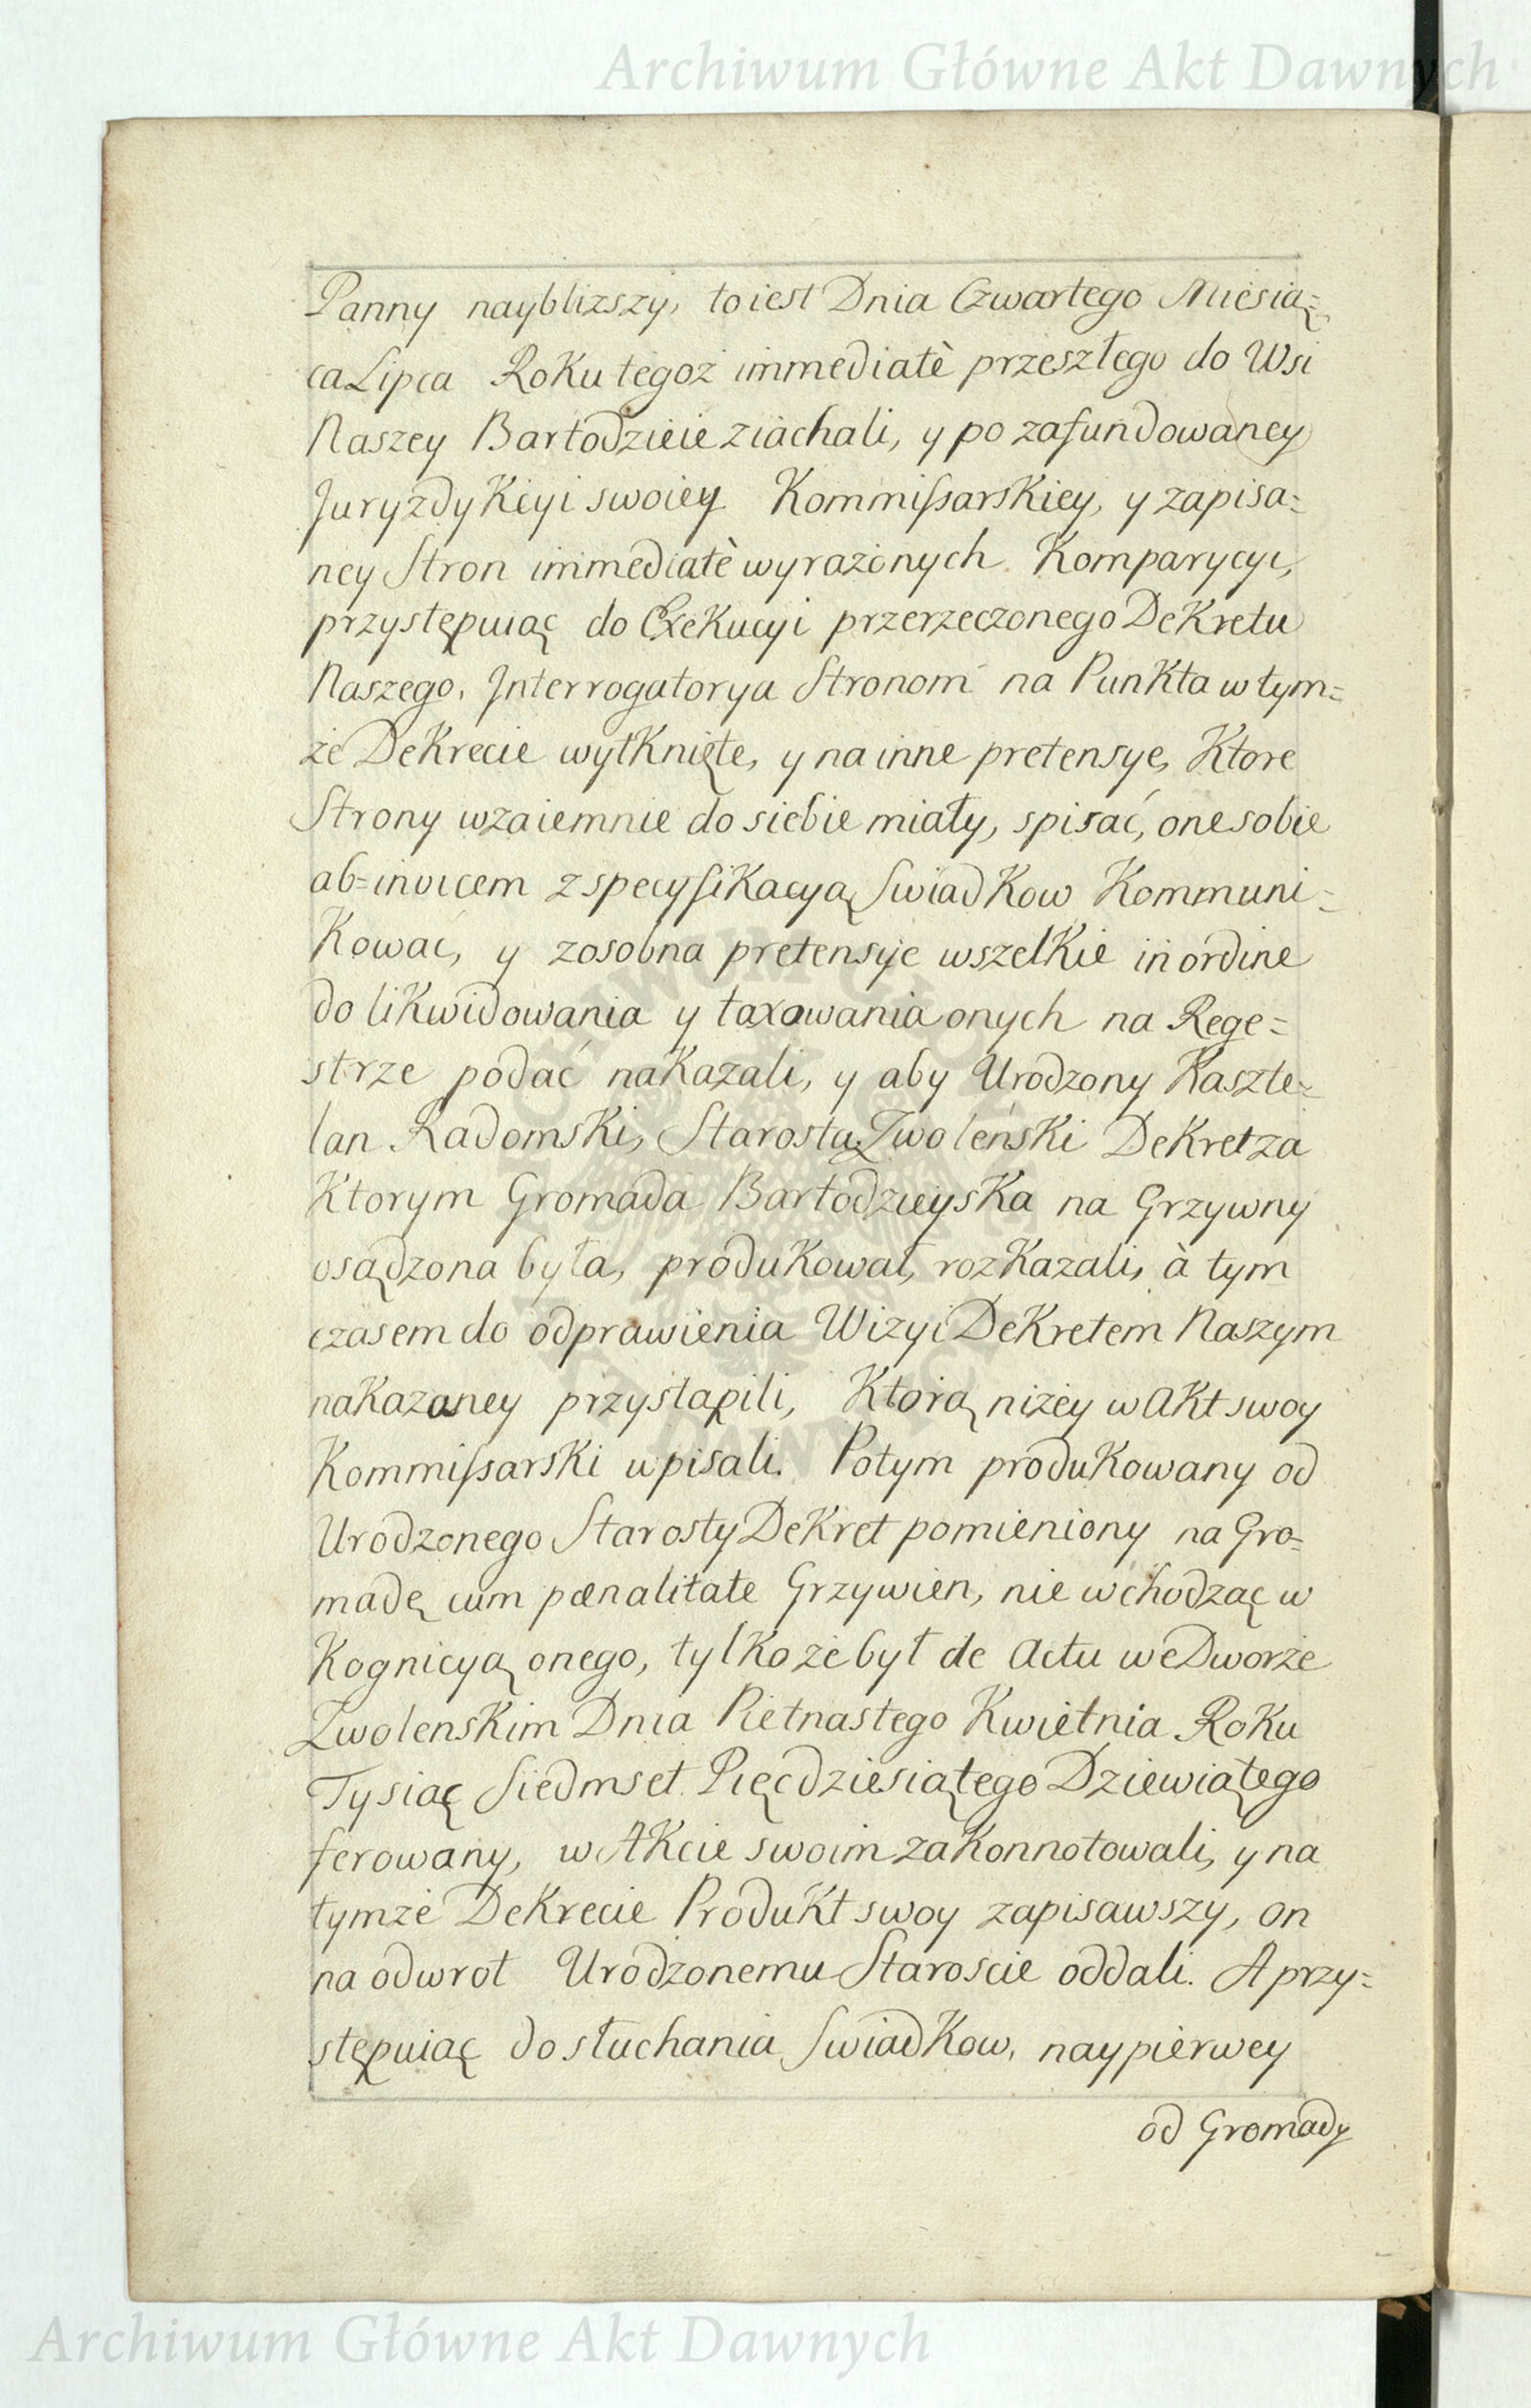 Archiwum Główne Akt Dawnych
Panny nayblizszy, to iest Dnia Czwartego Miesią=
ca Lipca Roku tegoż immediatè przeszłego do Wsi
Naszey Bartodzieie ziachali, y po zafundowaney
Juryzdykcyi swoiey Kommissarskiey, y zapisa=
ney Stron immediatè wyrażonych Komparycyi,
przystępuiąc do Exekucyi przerzeczonego Dekretu
Naszego, Interrogatorya Stronom na Punkta w tym=
że Dekrecie wytknięte, y na inne pretensye, Ktore
Strony wzaiemnie do siebie miały, spisać, one sobie
ab=invicem z specyfikacyą Swiadkow Kommuni=
kować, y zosobna pretensye wszelkie in ordine
do likwidowania y taxowania onych na Rege=
strze podać nakazali, y aby Urodzony Kaszte=
lan Radomski, Starosta Zwoleński Dekret za
Ktorym Gromada Bartodzieyska na Grzywny
osądzona była, produkował, rozkazali, à tym
czasem do odprawienia Wizyi Dekretem Naszym
nakazaney przystąpili, Ktorą niżey w Akt swoy
Kommissarski wpisali. Potym produkowany od
Urodzonego Starosty Dekret pomieniony na Gro=
madę cum pœnalitate Grzywien, nie wchodząc w
Kognicyą onego, tylko że był de Actu we Dworze
Zwolenskim Dnia Pietnastego Kwietnia Roku
Tysiąc Siedmset Pięcdziesiątego Dziewiątego
ferowany, w Akcie swoim zakonnotowali, y na
tymże Dekrecie Produkt swoy zapisawszy, on
na odwrot Urodzonemu Staroscie oddali. A przy=
stępuiąc do słuchania Swiadkow, naypierwey
od Gromady
Archiwum Główne Akt Dawnych